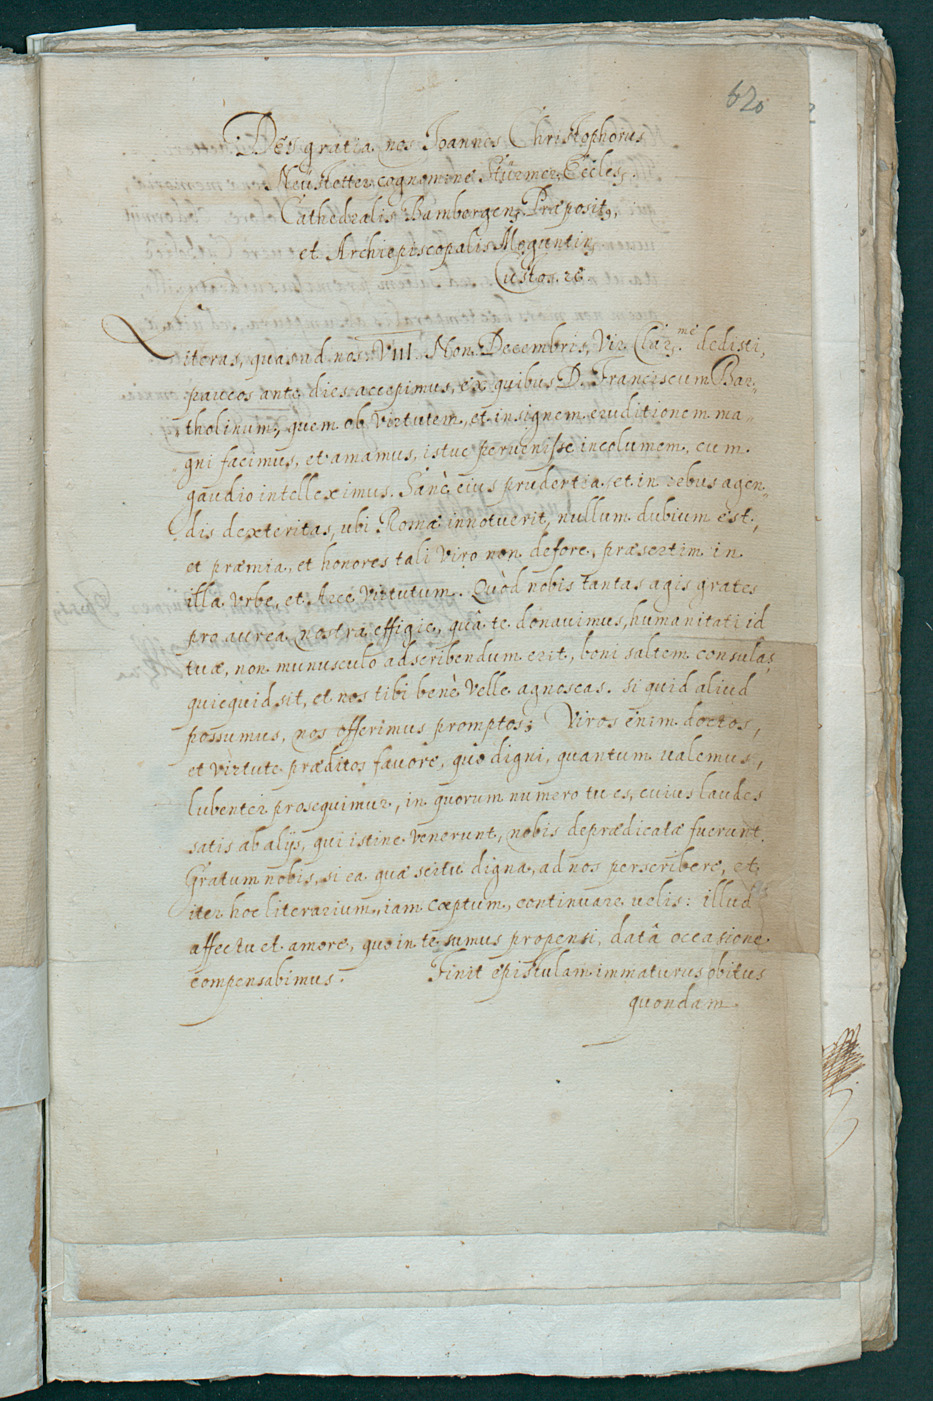 620
Dei gratia nos Joannes Christophorus
Neüstetter cognomine Stürmer, Eccles.
Cathedralis Bambergen. Præposit9,
et Archiepiscopalis Moguntin.
Custos. &c
Literas, quas ad nos VIII. Non. Decembris, Vir Clar.me dedisti,
paucos ante dies accepimus, ex quibus D. Franciscum Bar-
tholinum, quem ob virtutem, et insignem eruditionem ma-
gni facimus, et amamus, istuc peruenisse incolumem, cum
gaudio intelleximus. Sanè eius prudentia, et in rebus agen-
dis dexteritas, ubi Romæ innotuerit, nullum dubium est,
et præmia, et honores tali viro non defore, præsertim in
illa Vrbe, et Arce Virtutum. Quòd nobis tantas agis grates
pro aurea nostra effigie, quâ te donauimus, humanitati id
tuæ, non munusculo adscribendum erit, boni saltem consulas
quicquid sit, et nos tibi benè velle agnoscas. si quid aliud
possumus, nos offerimus promptos; Viros enim doctos,
et virtute præditos fauore, quo digni, quantum ualemus,
lubenter prosequimur, in quorum numero tu es, cuius laudes
satis ab alijs, qui istinc venerunt, nobis deprædicatæ fuerunt.
Gratum nobis, si ea quæ scitu digna, ad nos perscribere, et
iter hoc literarium, iam cœptum, continuare uelis: illud
affectu et amore, quo in te sumus propensi, datâ occasione
compensabimus. Finit epistulam immaturus obitus
quondam